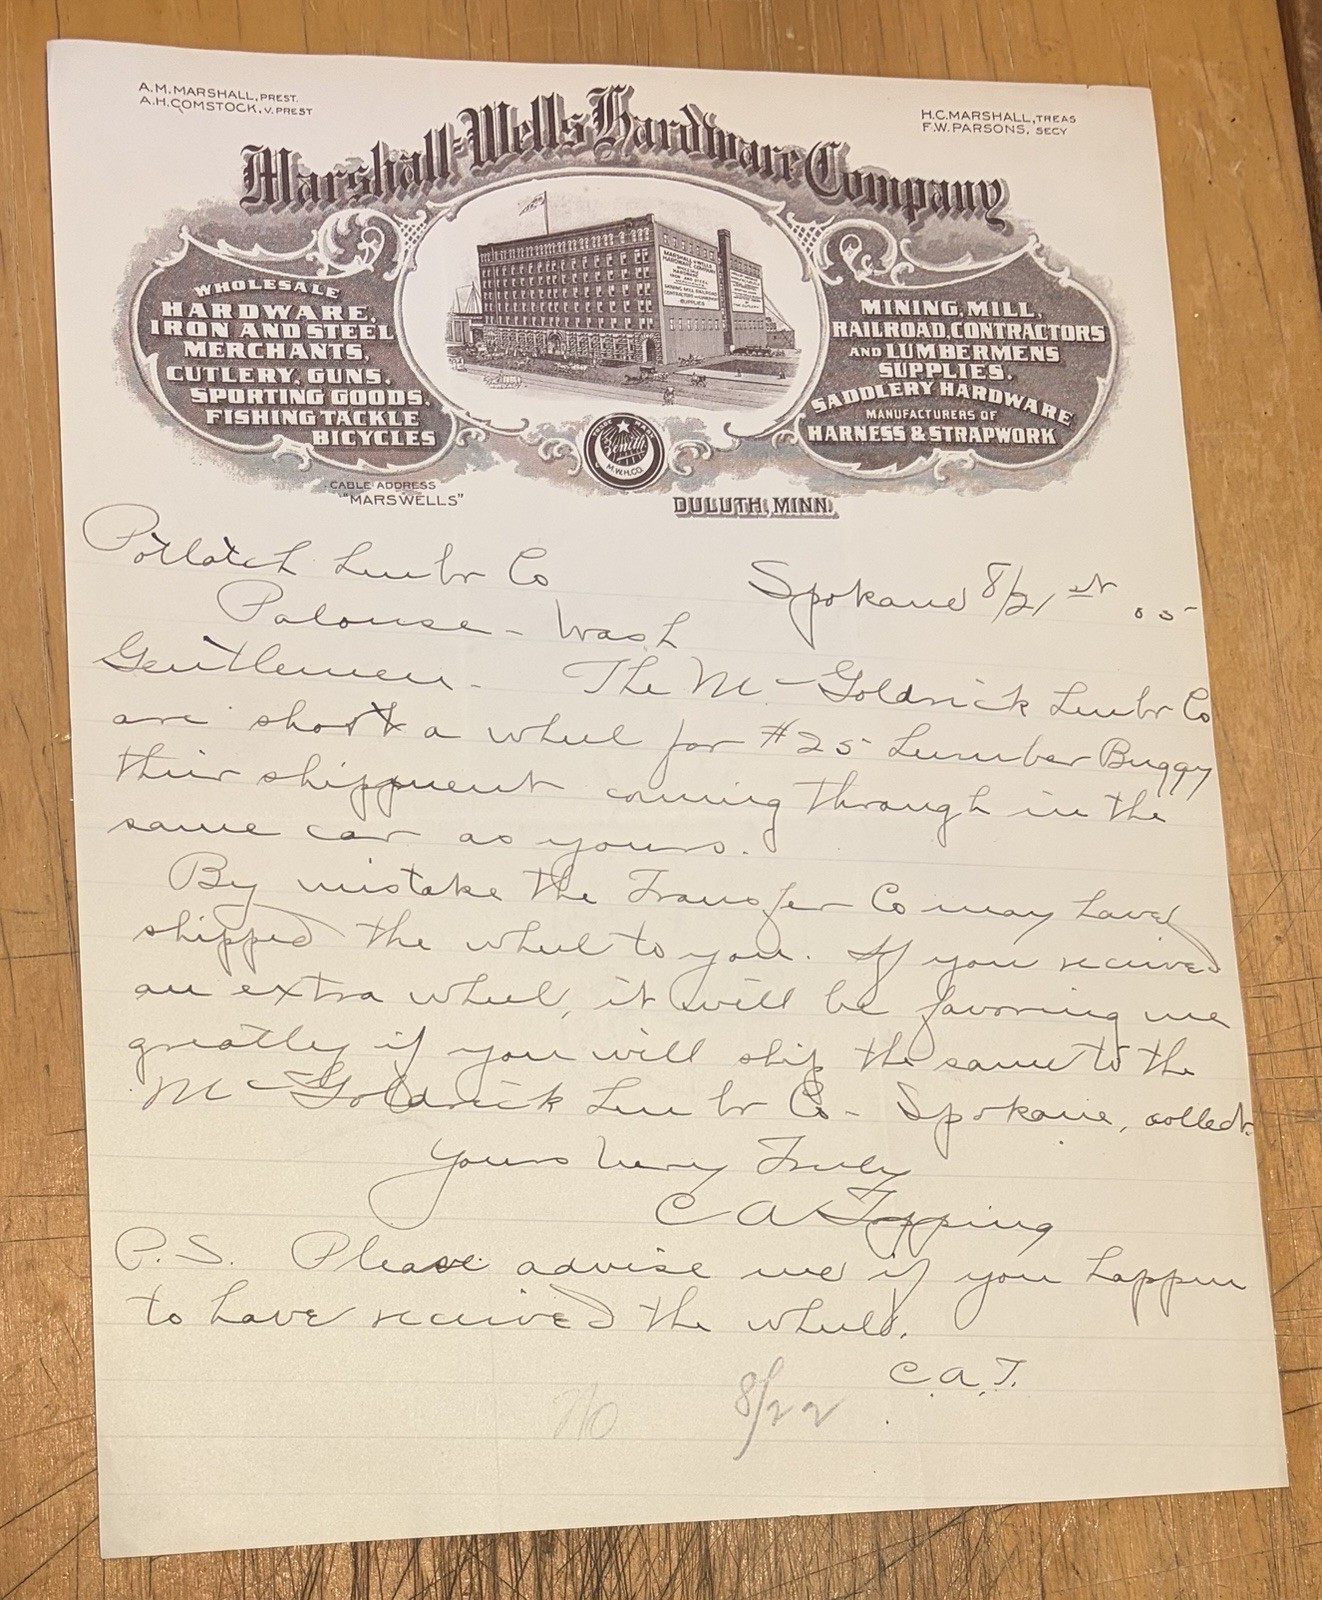 A.M. MARSHALL, PREST.
A.H. COMSTOCK, V. PREST
H.C. MARSHALL, TREAS
F.W. PARSONS, SECY
Marshall-Wells Hardware Company
WHOLESALE
HARDWARE,
IRON AND STEEL
MERCHANTS,
CUTLERY, GUNS,
SPORTING GOODS,
FISHING TACKLE
BICYCLES
MARSHALL-WELLS
HARDWARE COMPANY
MINING, MILL,
RAILROAD, CONTRACTORS
AND LUMBERMENS
SUPPLIES,
SADDLERY HARDWARE
MANUFACTURERS OF
HARNESS & STRAPWORK
Zenith
M.W.H.CO.
CABLE ADDRESS
"MARSWELLS"
DULUTH, MINN.
Potlatch Lumbr Co
Spokane 8/21 st 05
Palouse - Wash
Gentlemen - The Mc Goldrick Lumbr Co
are short a wheel for #25 Lumber Buggy
their shippment coming through in the
same car as yours.
By mistake the Transfer Co may have
shipped the wheel to you. If you received
an extra wheel, it will be favoring me
greatly if you will ship the same to the
Mc Goldrick Lumbr Co - Spokane, collect.
Yours Very Truly
C A Topping
P.S. Please advise me if you happen
to have received the wheel.
C.A.T.
No 8/22